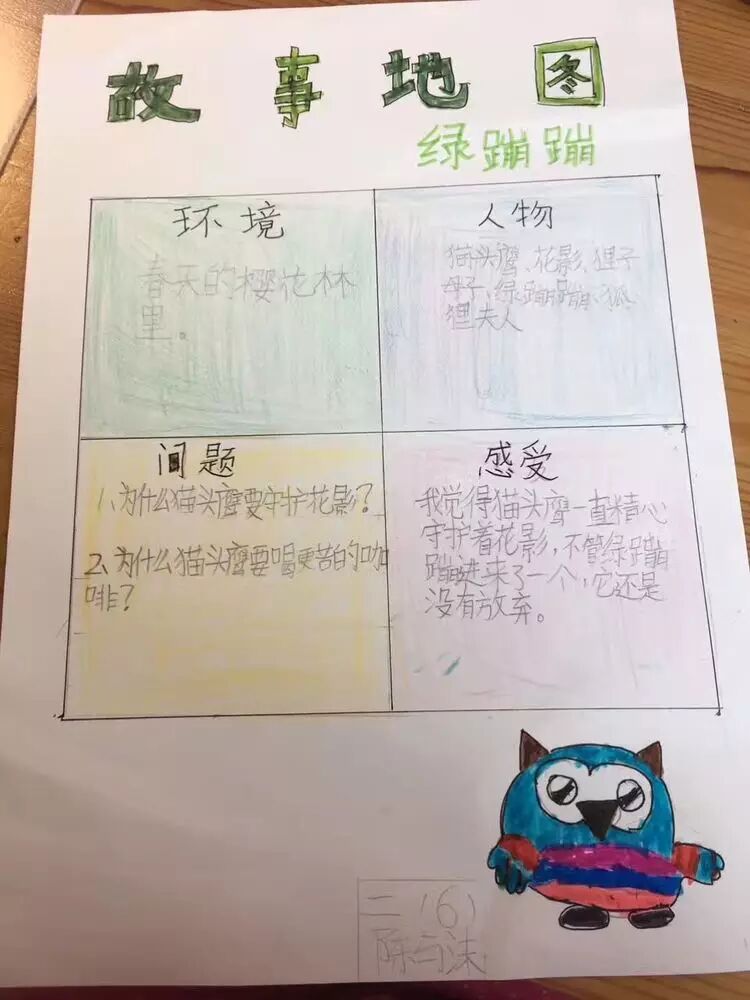 故事地图
绿蹦蹦
环境
春天的樱花林
里。
人物
猫头鹰、花影、狸子
母子、绿蹦蹦、狐
狸夫人
问题
1、为什么猫头鹰要守护花影？
2、为什么猫头鹰要喝更苦的咖
啡？
感受
我觉得猫头鹰一直精心
守护着花影，不管绿蹦
蹦进来了一个，它还是
没有放弃。
二（6）
陈与沫